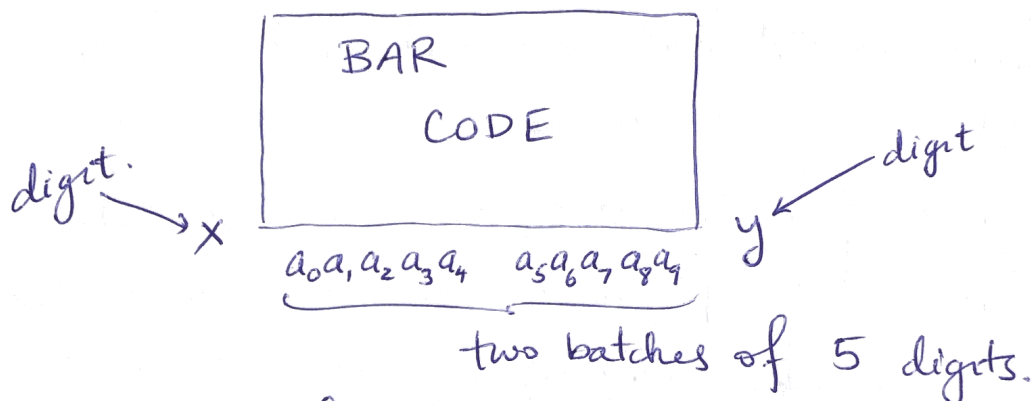 BAR
CODE
digit.
digit
x
y
a₀a₁a₂a₃a₄ a₅a₆a₇a₈a₉
two batches of 5 digits.